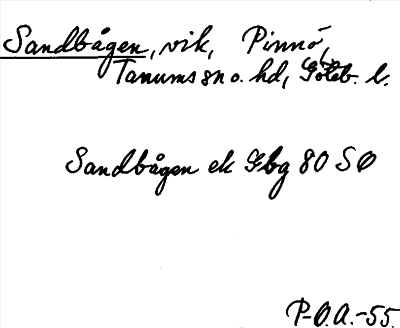 Sandbågen, vik, Pinnö,
Tanums sn o. hd, Göteb. l.
Sandbågen ek Gbg 80 SO
P-O.A.-55.